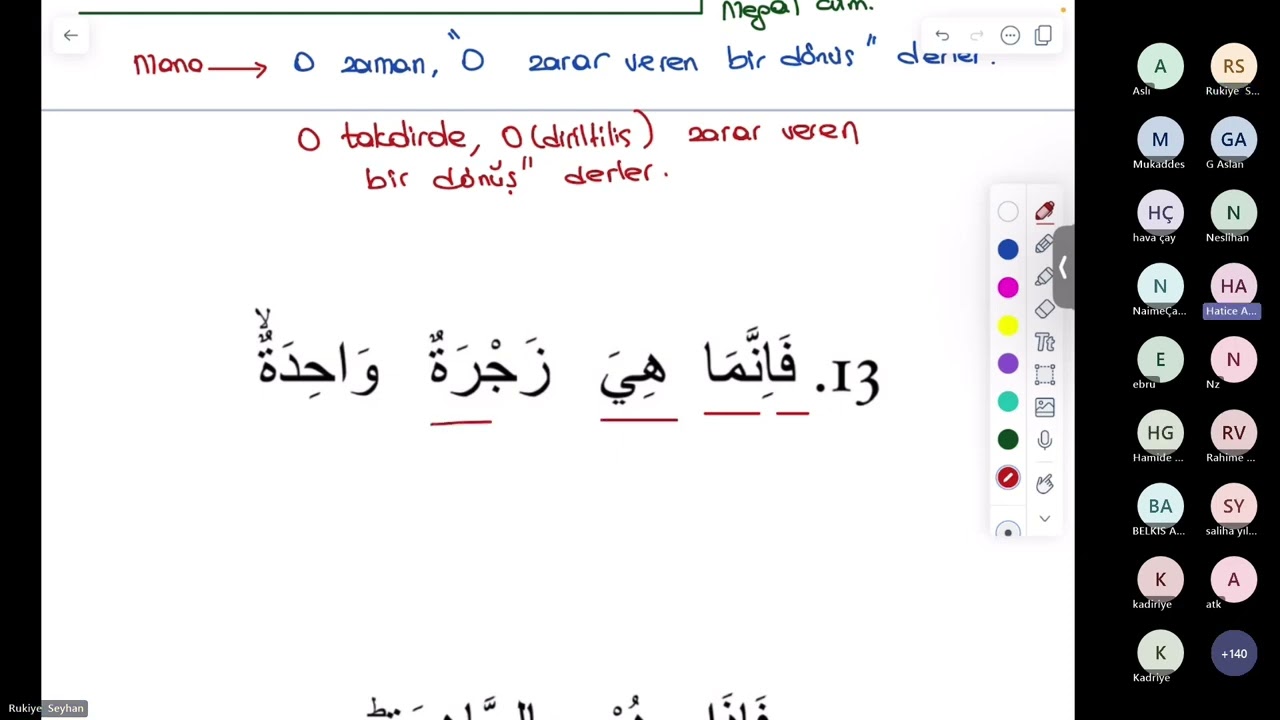 Mana → O zaman, "O zarar veren bir dönüş" derler.
O takdirde, O (diriltiliş) zarar veren
bir dönüş" derler.
13. فَاِنَّمَا هِيَ زَجْرَةٌ وَاحِدَةٌۙ
Tt
A
RS
Aslı
Rukiye S...
M
GA
Mukaddes
G Aslan
HÇ
N
hava çay
Neslihan
N
HA
NaimeÇa...
Hatice A...
E
N
ebru
Nz
HG
RV
Hamide ...
Rahime ...
BA
SY
BELKIS A...
saliha yıl...
K
A
kadiriye
atk
K
+140
Kadriye
Rukiye Seyhan